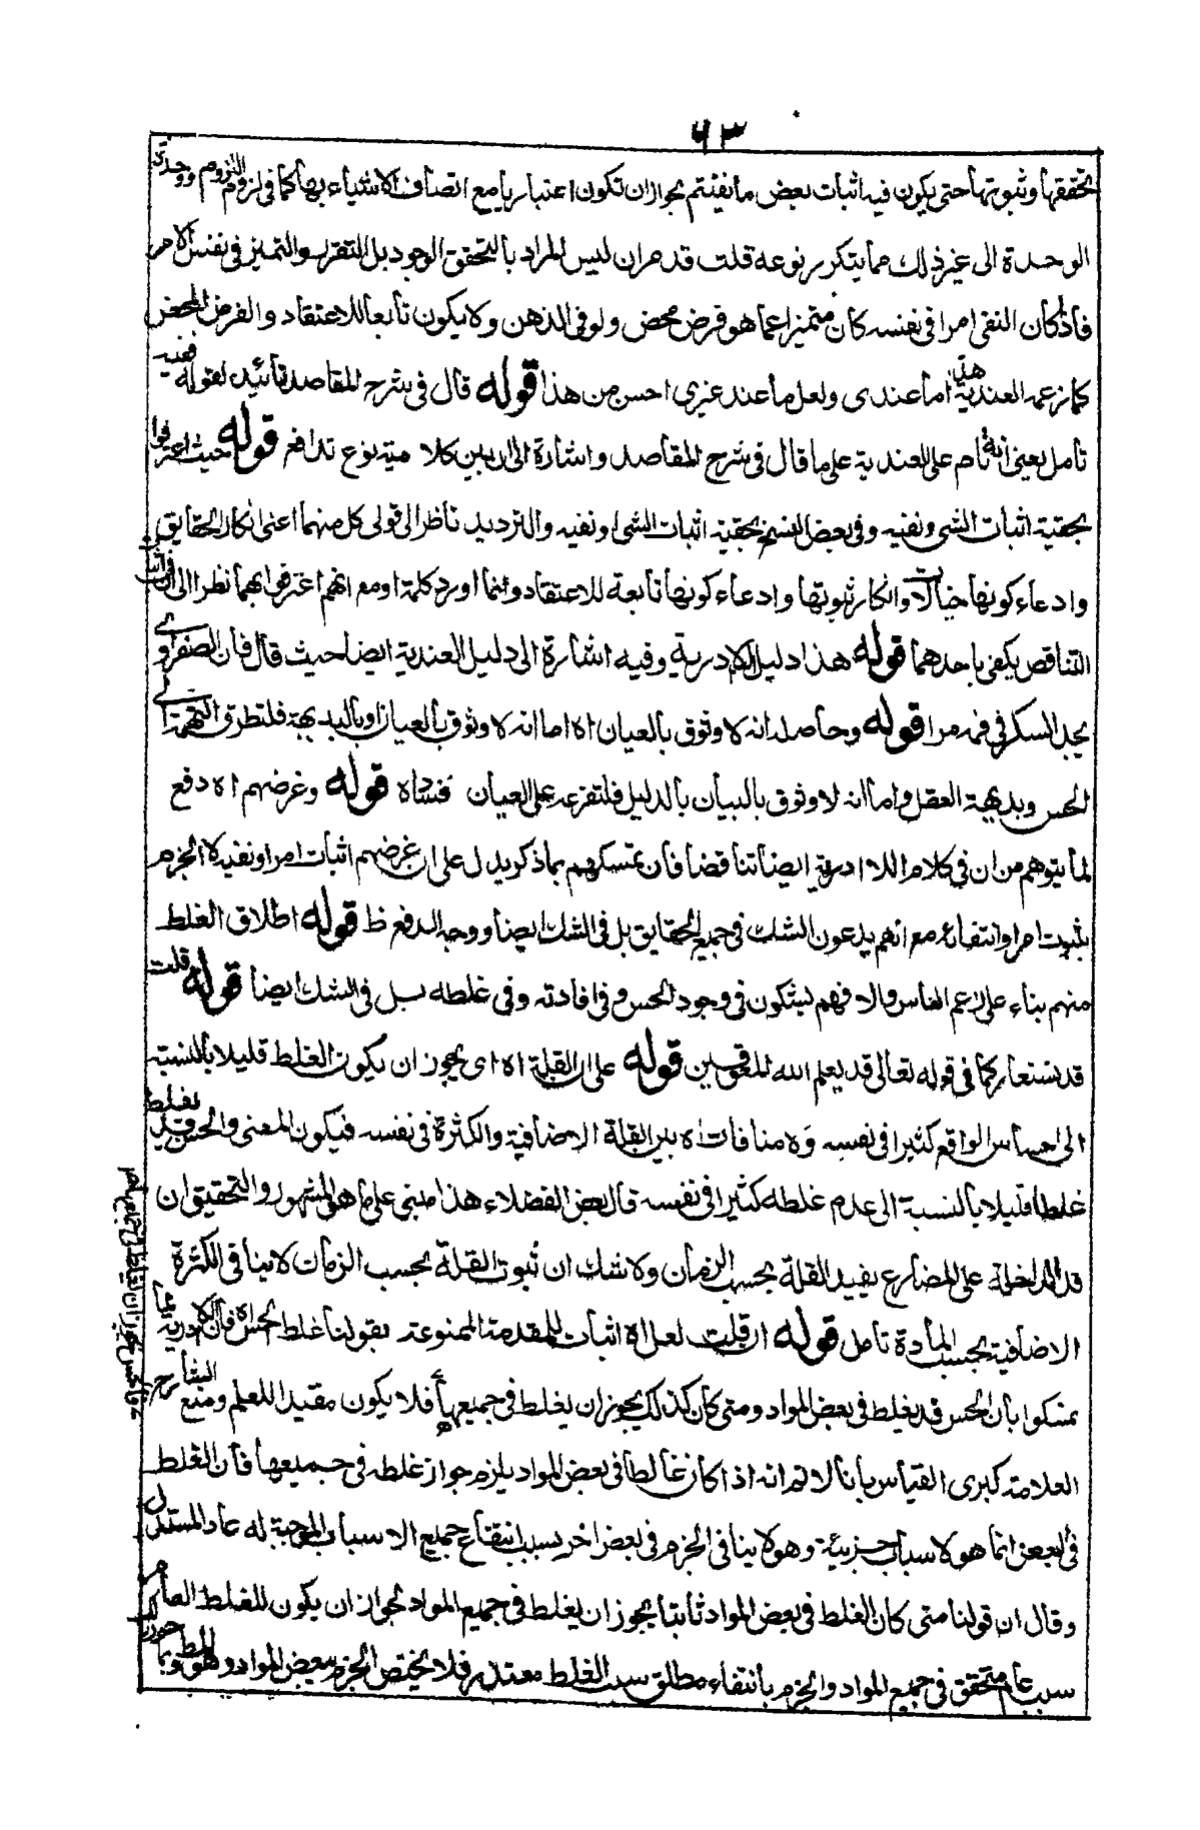 ٦٣
تحققها وثبوتها حتى يكون فيه اثبات بعض ما نفيتم بجواز ان تكون اعتباريا مع اتصاف الاشياء بها كما فى لزوم اللزوم ووحدة
الوحدة الى غير ذلك مما يتكرر نوعه قلت قد مر ان ليس المراد بالتحقق الوجود بل التقرر والتميز فى نفس الامر
فاذا كان النفى امرا فى نفسه كان متميزا عما هو فرض محض ولو فى الذهن ولا يكون تابعا للاعتقاد والفرض المحض
كما زعمه العندية هذا ما عندى ولعل ما عند غيرى احسن من هذا قوله قال فى شرح المقاصد تأئيد لقوله ففيه
تامل يعنى انه تام على العندية على ما قال فى شرح المقاصد واشارة الى ان بين كلا ميه نوع تدافع قوله حيث اعترفوا
بحقية اثبات الشئ ونفيه وفى بعض النسخ بحقية اثبات الشئ او نفيه والترديد ناظر الى قولى كل منهما اعنى انكار الحقايق
وادعاء كونها خيالات وانكار ثبوتها وادعاء كونها تابعة للاعتقاد وانما اورد كلمة او مع انهم اعترفوا بهما نظرا الى ان
التناقص يكفى باحدهما قوله هذا دليل اللاادرية وفيه اشارة الى دليل العندية ايضا حيث قال فان الصفراوى
يجد السكر فى فمه مرا قوله وحاصله انه لا وثوق بالعيان اه اما انه لا وثوق بالعيان او بالبديهة فلتطرق التهمة الى
الحس وبديهة العقل واما انه لا وثوق بالبيان بالدليل فلتفرعه على العيان ففساده قوله وغرضهم اه دفع
لما يتوهم من ان فى كلام اللاادرية ايضا تناقضا فان تمسكهم بما ذكر يدل على ان غرضهم اثبات امر او نفيه لا الجزم
بثبوت امر وانتفائه مع انهم يدعون الشك فى جميع الحقايق بل فى الشك ايضا ووجه الدفع ظ قوله اطلاق الغلط
منهم بناء على زعم الناس والا فهم يشكون فى وجود الحس وفى افادته وفى غلطه بل فى الشك ايضا قوله قلت
قد يستعار كما فى قوله تعالى قد يعلم الله المعوقين قوله على ان القلة اه اى يجوز ان يكون الغلط قليلا بالنسبة
الى احساس الواقع كثيرا فى نفسه ولا منافات اه بين القلة الاضافية والكثرة فى نفسه فيكون المعنى والحس قد يغلط
غلطا قليلا بالنسبة الى عدم غلطه كثيرا فى نفسه قال بعض الفضلاء هذا مبنى على ما هو المشهور والتحقيق ان
قد الداخلة على المضارع يفيد القلة بحسب الزمان ولا شك ان ثبوت القلة بحسب الزمان لا ينافى الكثرة
الاضافية بحسب المادة تامل قوله ان قلت لعل اه اثبات للمقدمة الممنوعة بقولنا غلط الحس اه فان اللاادرية
تمسكوا بان الحس قد يغلط فى بعض المواد ومتى كان كذلك يجوز ان يغلط فى جميعها فلا يكون مفيدا للعلم ومنع الشارح
العلامة كبرى القياس بانا لا نم انه اذا كان غالطا فى بعض المواد يلزم جواز غلطه فى جميعها فان الغلط
فى البعض انما هو لاسباب جزئية وهو لا ينافى الجزم فى بعض اخر بسبب انتفاء جميع الاسباب الموجبة له عاد المستدل
وقال ان قولنا متى كان الغلط فى بعض المواد ثابتا يجوز ان يغلط فى جميع المواد لجواز ان يكون للغلط العام
سبب عام متحقق فى جميع المواد والجزم بانتفاء مطلق سبب الغلط متعذر فلا يختص الجزم ببعض المواد وهو المط